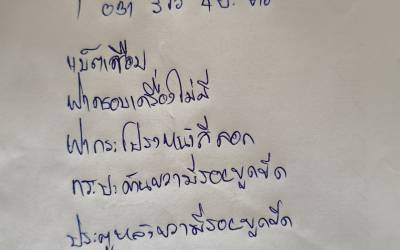 แบ็ตเตือบ
ฝาครอบเครื่องไม่มี
ฝากระโปรงหน้าสีลอก
กระบะด้านขวามีรอยขูดขีด
ประตูหลังขวามีรอยขูดขีด